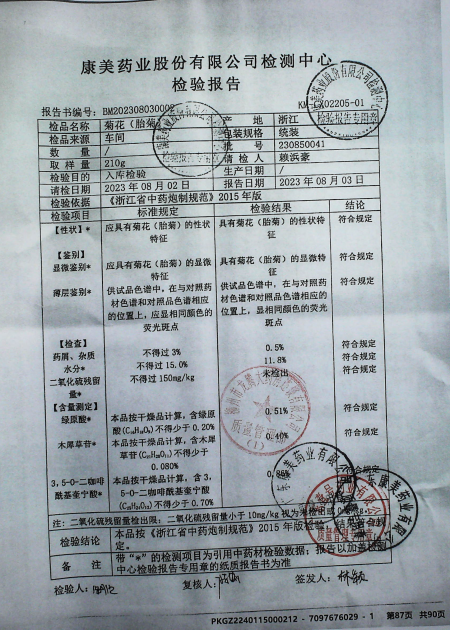 康美药业股份有限公司检测中心
检验报告
报告书编号: BM202308030002
检品名称 菊花（胎菊） 产 地 浙江
检品来源 车间 包装规格 统装
数 量 / 批 号 230850041
取 样 量 210g 请 检 人 赖浜豪
检验目的 入库检验 生产日期 /
请检日期 2023 年 08 月 02 日 报告日期 2023 年 08 月 03 日
检验依据 《浙江省中药炮制规范》2015 年版
检验项目 标准规定 检验结果 结论
【性状】* 应具有菊花（胎菊）的性状 具有菊花（胎菊）的性状特 符合规定
特征 征
【鉴别】
显微鉴别* 应具有菊花（胎菊）的显微 具有菊花（胎菊）的显微特 符合规定
特征 征
薄层鉴别* 供试品色谱中，在与对照药 供试品色谱中，在与对照药 符合规定
材色谱和对照品色谱相应 材色谱和对照品色谱相应的
的位置上，应显相同颜色的 位置上，显相同颜色的荧光
荧光斑点 斑点
【检查】
药屑、杂质 不得过 3% 0.5% 符合规定
水分* 不得过 15.0% 11.8% 符合规定
二氧化硫残留 不得过 150mg/kg 未检出 符合规定
量*
【含量测定】
绿原酸* 本品按干燥品计算，含绿原 0.51% 符合规定
酸(C₁₆H₁₈O₉)不得少于 0.20%
木犀草苷* 本品按干燥品计算，含木犀 0.40% 符合规定
草苷(C₂₁H₂₀O₁₁)不得少于
0.080%
3,5-O-二咖啡 本品按干燥品计算，含 3, 符合规定
酰基奎宁酸* 5-O-二咖啡酰基奎宁酸
(C₂₅H₂₄O₁₂)不得少于 0.70%
注：二氧化硫残留量检出限：二氧化硫残留量小于 10mg/kg 视为未检出
检验结论 本品按《浙江省中药炮制规范》2015 年版检验，结果符合规
定。
备 注 带“*”的检测项目为引用中药材检验数据；报告以加盖检测
中心检验报告专用章的纸质报告书为准
检验人: 复核人: 签发人:
PKGZ2240115000212 - 7097676029 - 1 第87页 共90页